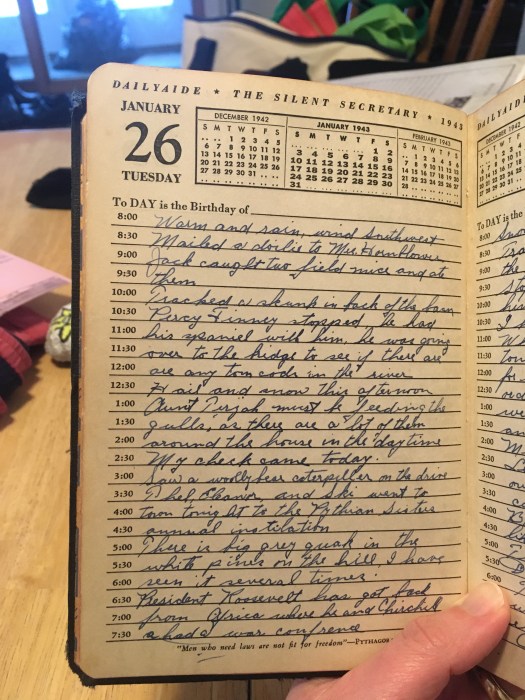 DAILYAIDE ★ THE SILENT SECRETARY ★ 1943
JANUARY
26
TUESDAY
DECEMBER 1942
S M T W T F S
.. .. 1 2 3 4 5
6 7 8 9 10 11 12
13 14 15 16 17 18 19
20 21 22 23 24 25 26
27 28 29 30 31 .. ..
JANUARY 1943
S M T W T F S
.. .. .. .. .. 1 2
3 4 5 6 7 8 9
10 11 12 13 14 15 16
17 18 19 20 21 22 23
24 25 26 27 28 29 30
31 .. .. .. .. .. ..
FEBRUARY 1943
S M T W T F S
.. 1 2 3 4 5 6
7 8 9 10 11 12 13
14 15 16 17 18 19 20
21 22 23 24 25 26 27
28 .. .. .. .. .. ..
To DAY is the Birthday of
8:00 Warm and rain, wind Southwest
8:30 Mailed a doilie to Mrs Hornblower
9:00 Jack caught two field mice and ate
9:30 them
10:00 Tracked a skunk in back of the barn
10:30 Percy Finney stopped he had
11:00 his spaniel with him, he was going
11:30 over to the bridge to see if there are
12:00 are any tom cods in the river
12:30 Hail and snow this afternoon
1:00 Aunt Tirzah must be feeding the
1:30 gulls, as there are a lot of them
2:00 around the house in the daytime
2:30 My check came today.
3:00 Saw a woolly bear caterpiller on the drive
3:30 Thel, Eleanor, and Ski went to
4:00 town tonight to the Pythian Sisters
4:30 annual instilation
5:00 There is big grey quak in the
5:30 white pines on the hill, I have
6:00 seen it several times.
6:30 President Roosevelt has got back
7:00 from Africa where he and Chirchill
7:30 had a war confrence
"Men who need laws are not fit for freedom"—PYTHAGOR
DAILYAID
DECEMBER 1942
To DAY is the
8:00
8:30
9:00
9:30
10:00
10:30
11:00
11:30
12:00
12:30
1:00
1:30
2:00
2:30
3:00
3:30
4:00
4:30
5:00
5:30
6:00